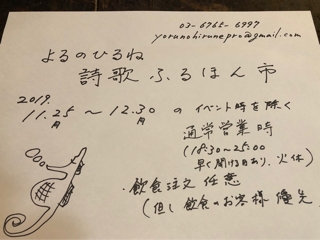 03-6765-6997
yorunohirunepro@gmail.com
よるのひるね
詩歌ふるほん市
2019.
11.25 ～ 12.30 の イベント時を除く
月 月
通常営業時
(18:30～25:00
早く開ける日あり、火休)
・飲食注文 任意
(但し飲食のお客様優先